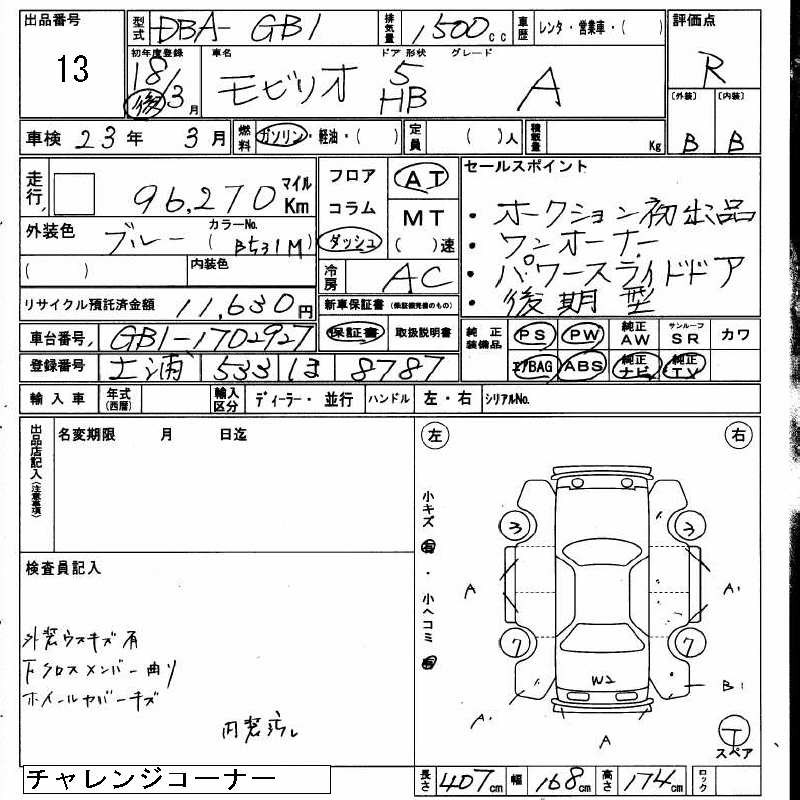 出品番号 13
型式 DBA-GB1 排気量 1500cc 車歴 レンタ・営業車・( )
評価点 R
初年度登録 18/後3月 車名 モビリオ ドア 形状 5 HB グレード A
〔外装〕 B 〔内装〕 B
車検 23年 3月 燃料 ガソリン・軽油・( ) 定員 ( )人 積載量 Kg
走行 96,270 マイル Km
フロア コラム ダッシュ
AT MT ( )速
セールスポイント
・オークション初出品
・ワンオーナー
・パワースライドドア
・後期型
外装色 ブルー カラーNo. (B531M)
( ) 内装色
冷房 AC
リサイクル預託済金額 11,630円
新車保証書 (保証継続書のもの)
車台番号 GB1-1702927
保証書 取扱説明書
純正装備品 PS PW 純正AW サンルーフSR カワ
登録番号 土浦 533 は 8787
エアBAG ABS 純正ナビ 純正TV
輸入車 年式(西暦) 輸入区分 ディーラー・並行 ハンドル 左・右 シリアルNo.
出品店記入(注意事項)
名変期限 月 日迄
左 右
小キズ 有 ・ 小ヘコミ 有
3 3
A A1
7 7
W2 B1
A1 A
検査員記入
外装ウスキズ有
下クロスメンバー曲り
ホイールカバーキズ
内装汚レ
T スペア
チャレンジコーナー
長さ 407cm 幅 168cm 高さ 174cm ロック